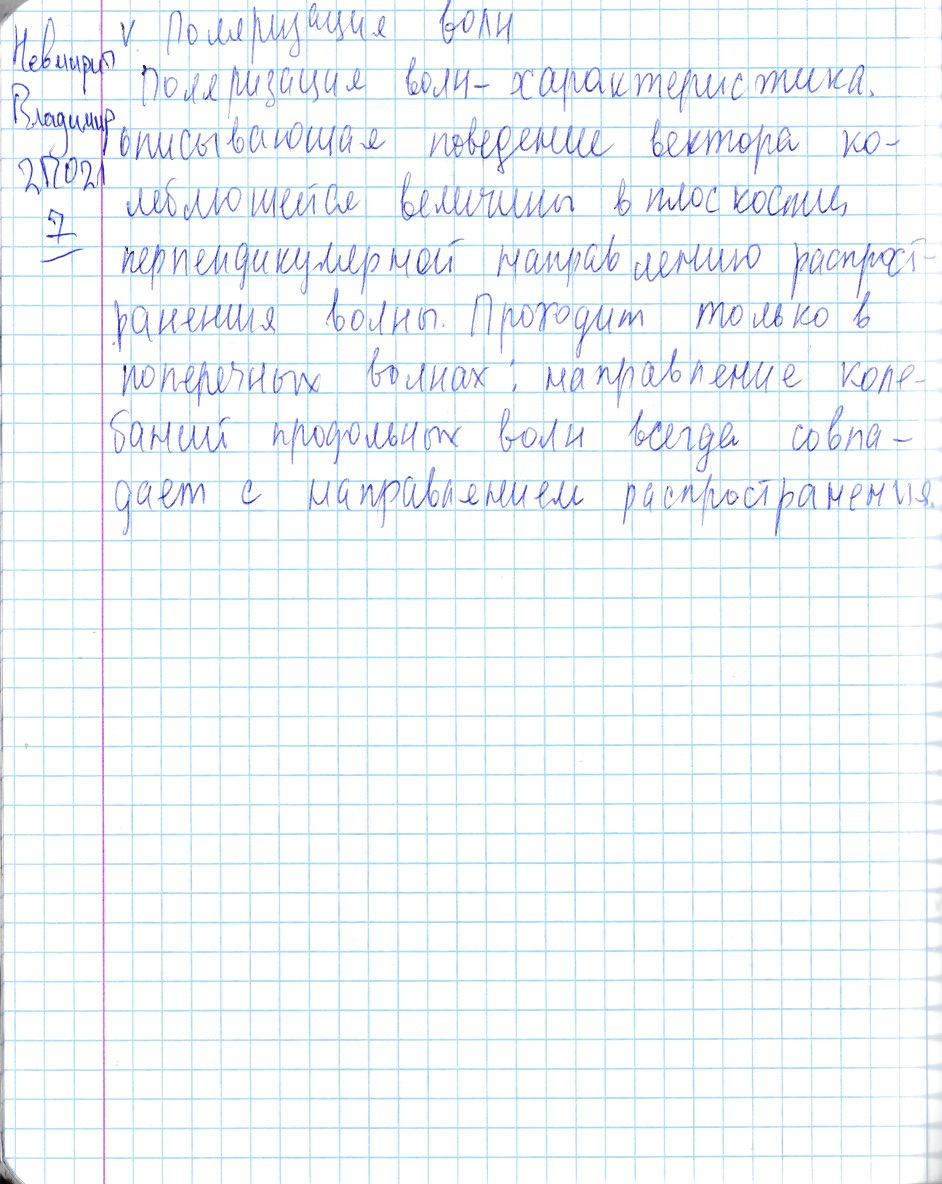 V. Поляризация волн
Невмирич
Поляризация волн - характеристика,
Владимир
описывающая поведение вектора ко-
2П021
леблющейся величины в плоскости,
7
перпендикулярной направлению распрост-
ранения волны. Проходит только в
поперечных волнах: направление коле-
баний продольных волн всегда совпа-
дает с направлением распространения.